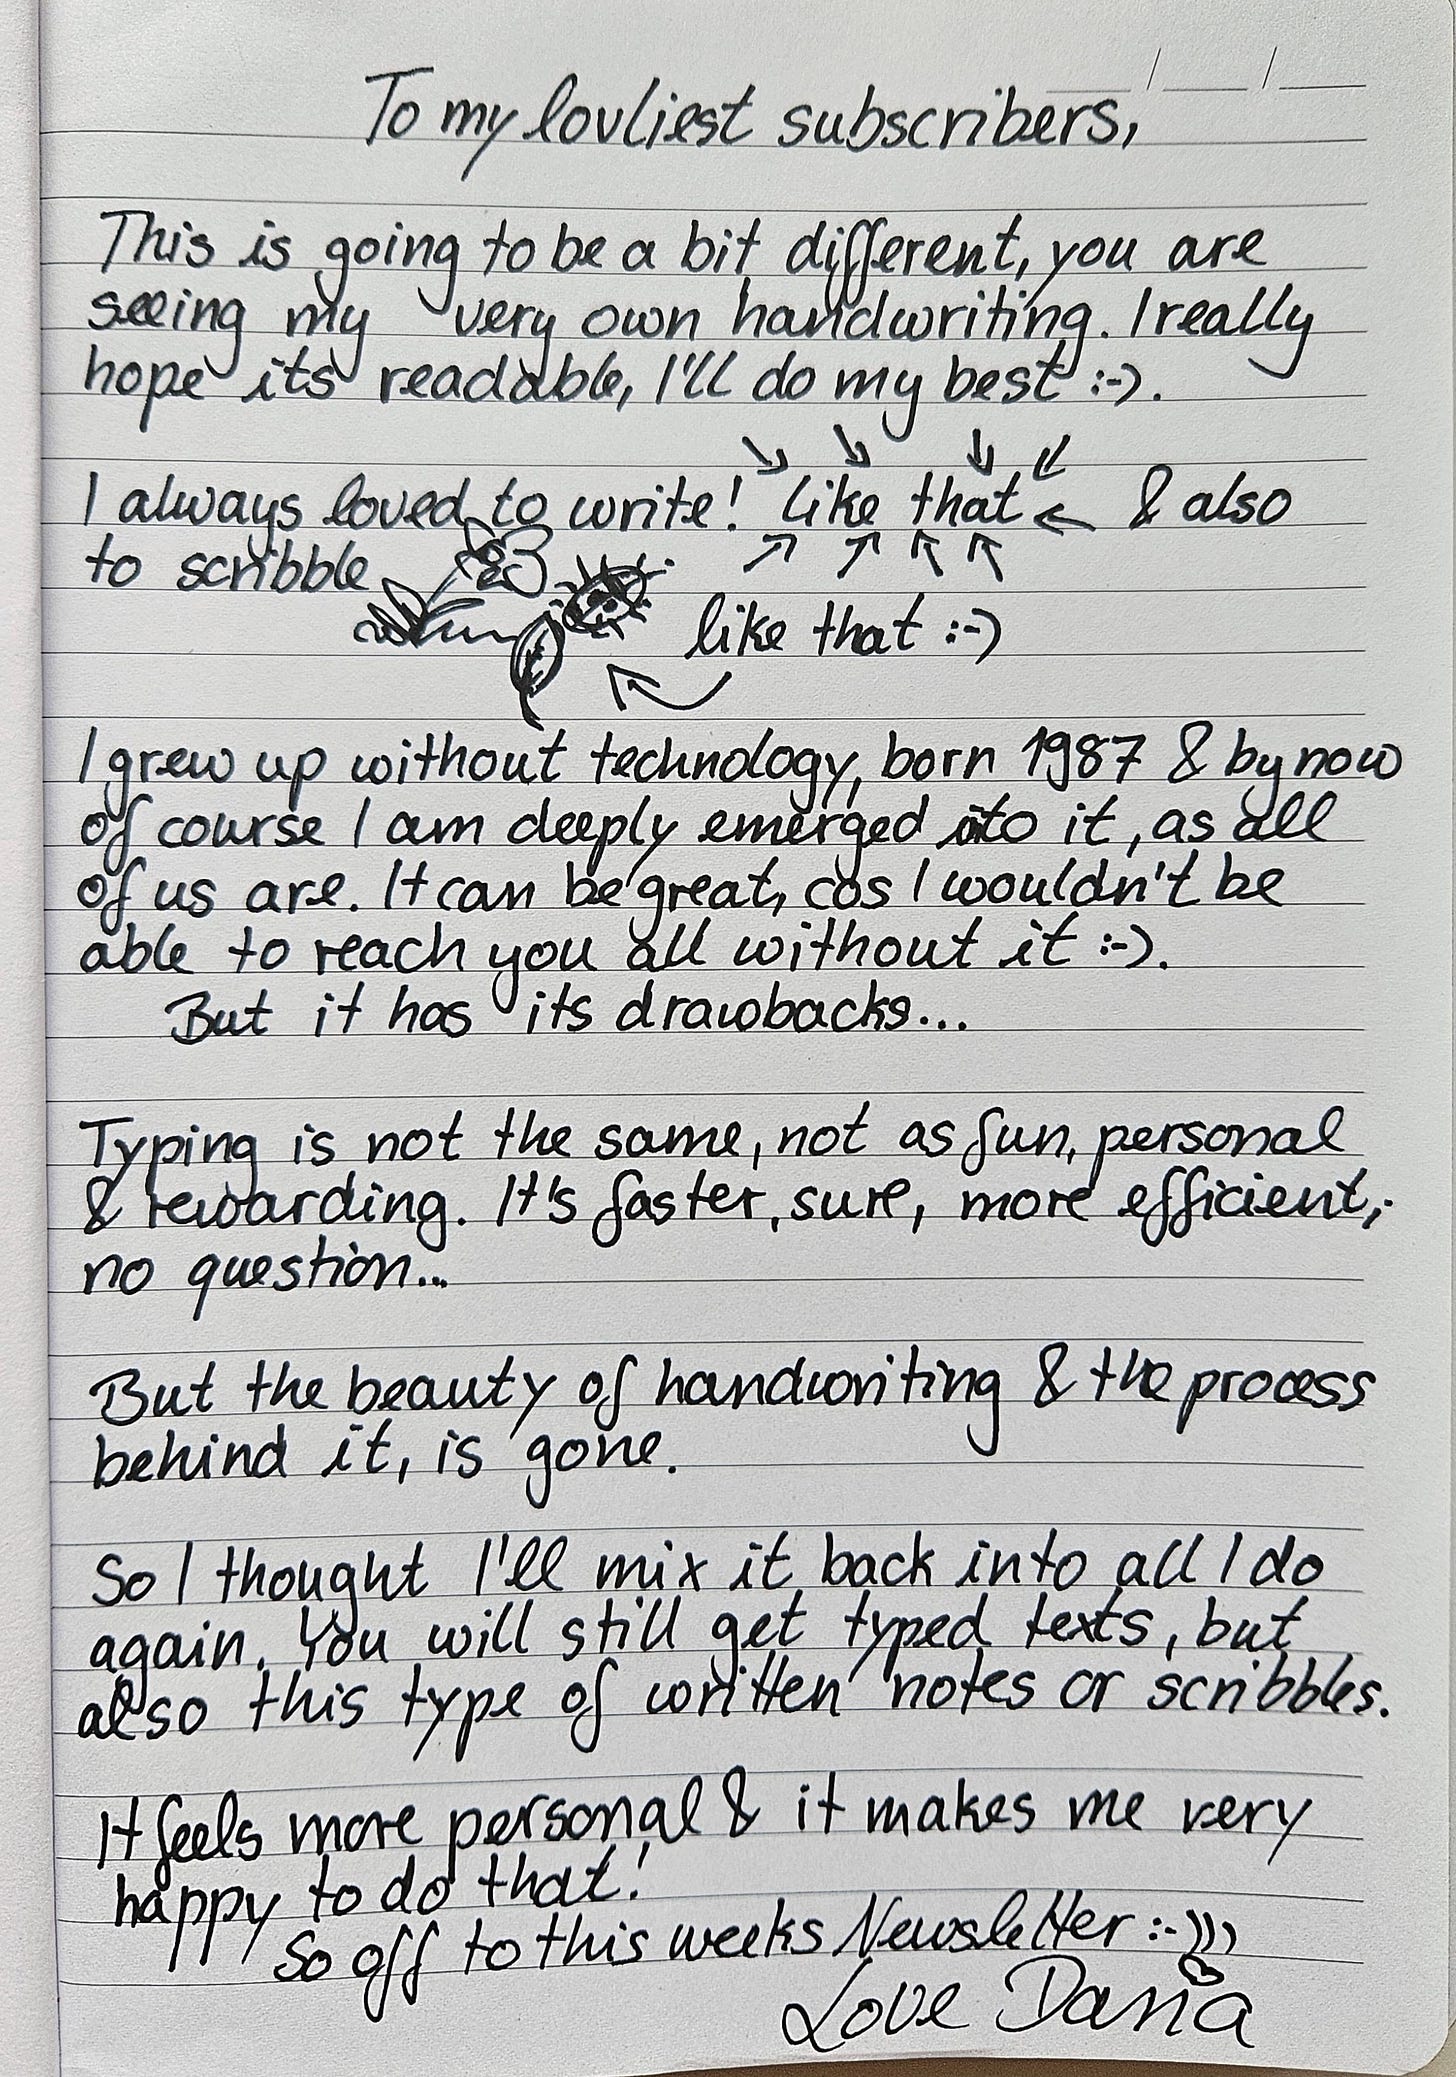 To my lovliest subscribers,
This is going to be a bit different, you are
seeing my very own handwriting. I really
hope its readable, I'll do my best :-).
I always loved to write! like that & also
to scribble
like that :-)
I grew up without technology, born 1987 & by now
of course I am deeply emerged into it, as all
of us are. It can be great, cos I wouldn't be
able to reach you all without it :-).
But it has its drawbacks...
Typing is not the same, not as fun, personal
& rewarding. It's faster, sure, more efficient,
no question...
But the beauty of handwriting & the process
behind it, is gone.
So I thought I'll mix it back into all I do
again. You will still get typed texts, but
also this type of written notes or scribbles.
It feels more personal & it makes me very
happy to do that!
So off to this weeks Newsletter :-)))
Love Daria